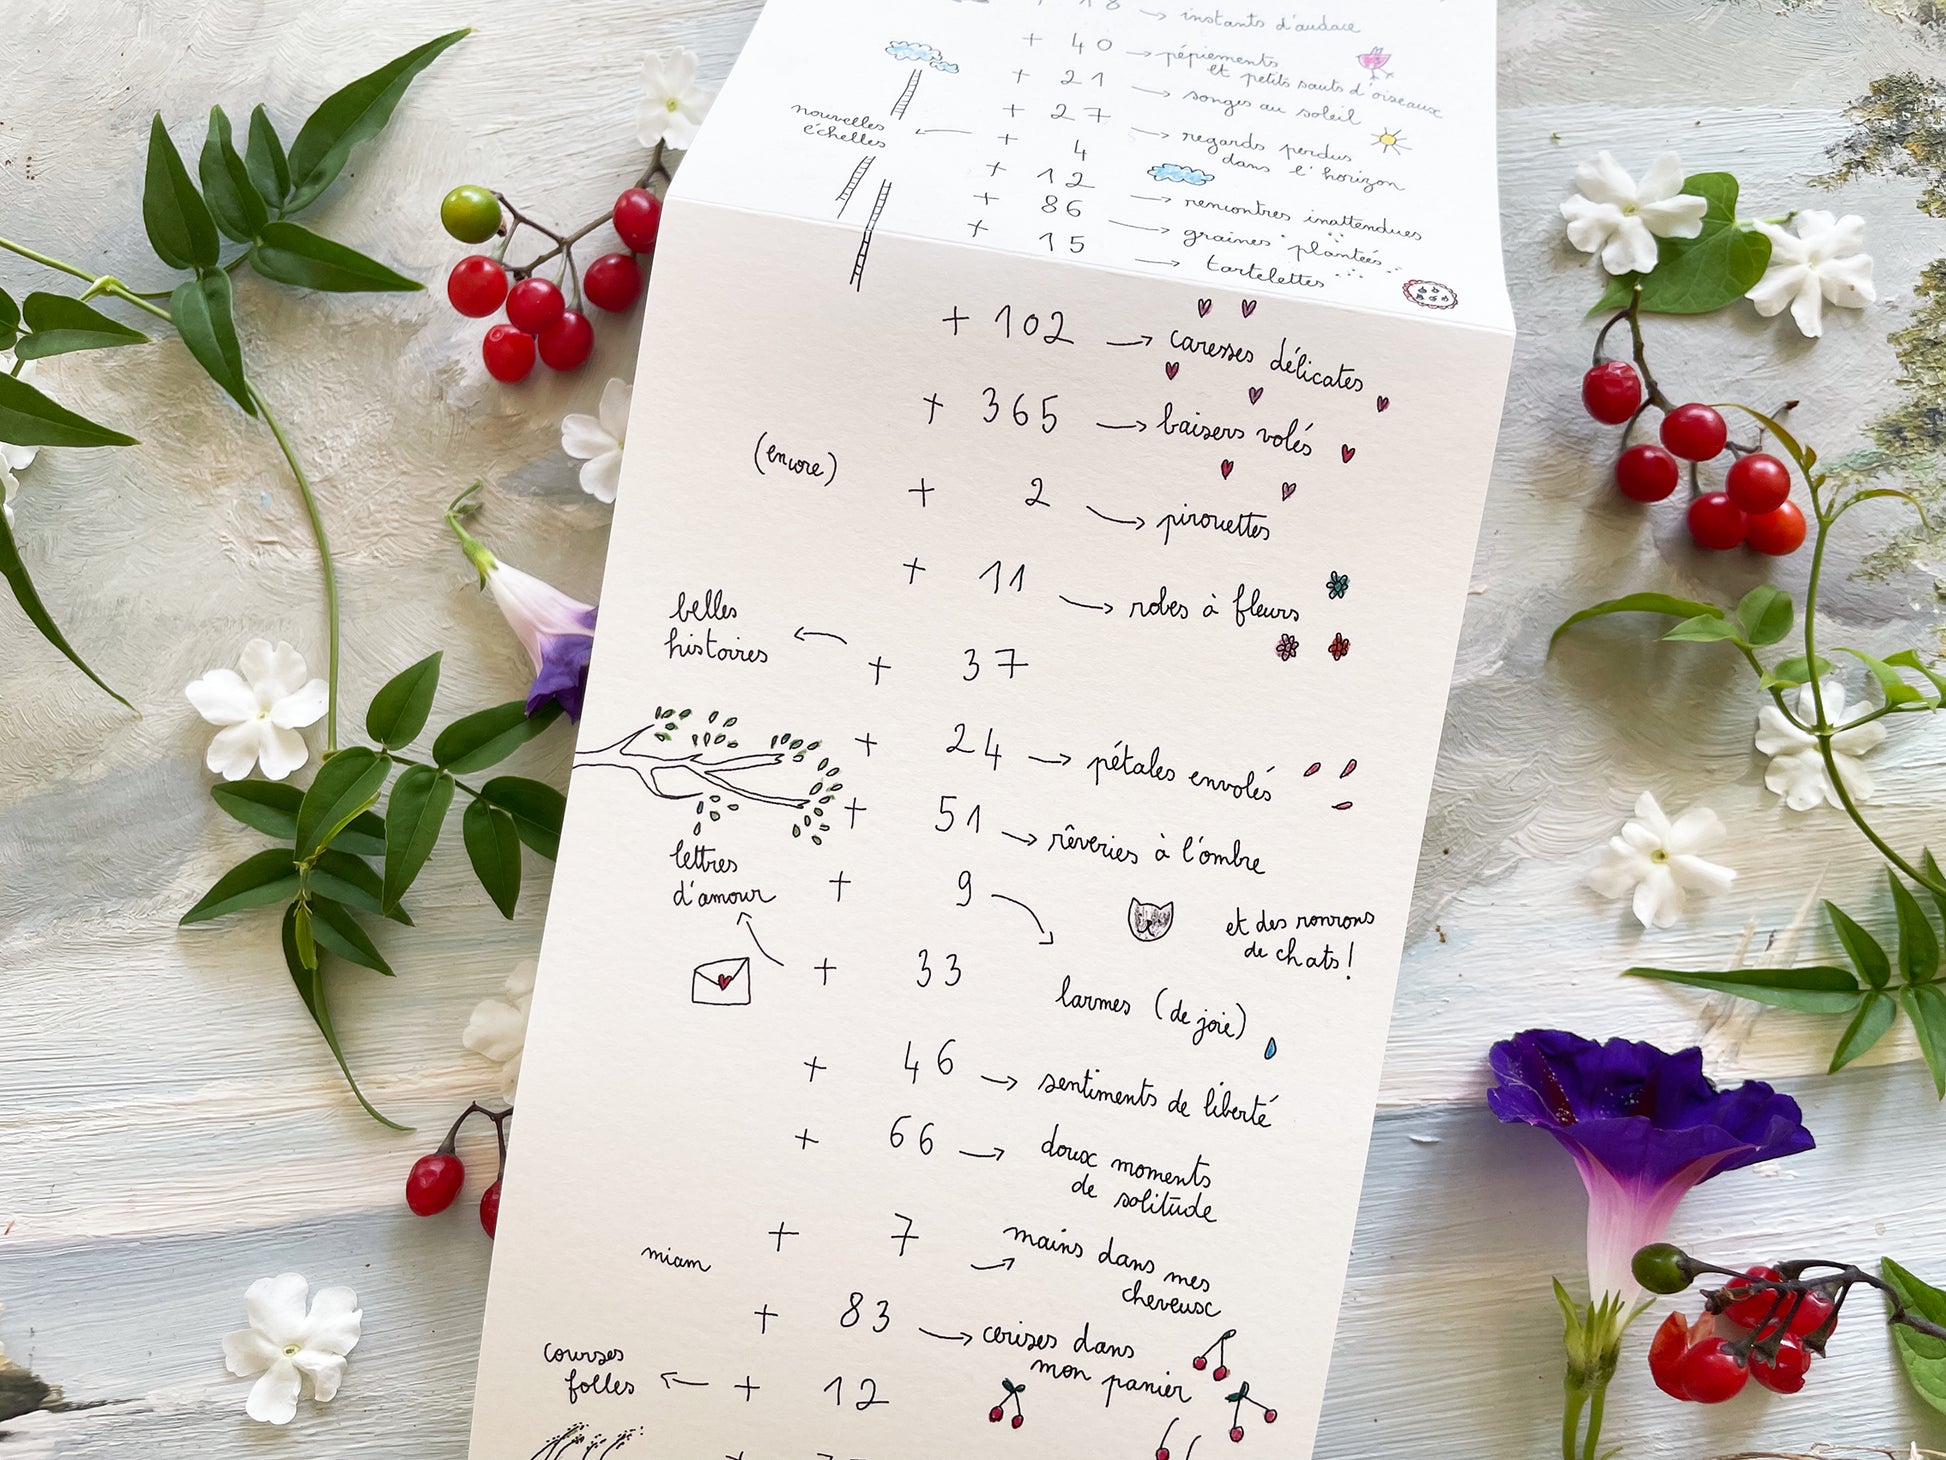 + 18 → instants d'audace
+ 40 → pépiements
et petits sauts d'oiseaux
+ 21 → songes au soleil
+ 27 → regards perdus
dans l'horizon
nouvelles
échelles
← + 4
+ 12 → rencontres inattendues
+ 86 → graines plantées
+ 15 → tartelettes
+ 102 → caresses délicates
+ 365 → baisers volés
(encore)
+ 2 → pirouettes
+ 11 → robes à fleurs
belles
histoires
← + 37
+ 24 → pétales envolés
+ 51 → rêveries à l'ombre
+ 9 →
larmes (de joie)
et des ronrons
de chats !
lettres
d'amour
← + 33
+ 46 → sentiments de liberté
+ 66 → doux moments
de solitude
+ 7 → mains dans mes
cheveux
miam
+ 83 → cerises dans
mon panier
courses
folles
← + 12
+